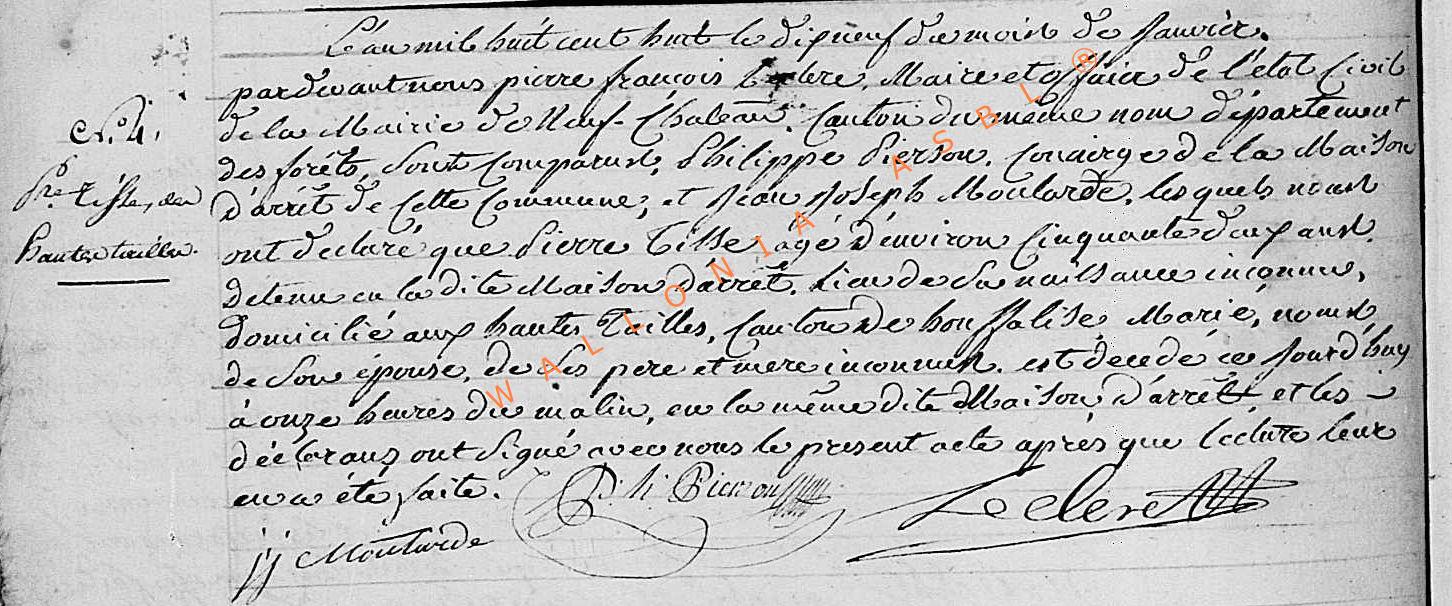 L'an mil huit cent huit le dix neuf du mois de Janvier.
pardevant nous pierre françois Leclere, Maire et officier de l'état Civil
de la Mairie de Neuf-Château, Canton du même nom département
des forêts, sont comparus, Philippe Pierson, concierge de la Maison
d'arrêt de cette Commune, et Jean Joseph Moutarde, lesquels nous
ont declaré que Pierre Tisse âgé d'environ Cinquante deux ans
detenu en la dite Maison d'arrêt, lieu de sa naissance inconnu,
domicilié aux hautes Tailles, Canton de houffalise Marié, nom
de son épouse, de ses pere et mere inconnus, est décedé ce Jourd'huy
à onze heures du matin, en la même dite Maison d'arrêt, et les
déclarans ont signé avec nous le present acte après que lecture leur
en a été faite.
Ph Pierson
Leclere
jj Moutarde
N.° 4.
Pre Tisse, des
hautes tailles.
WALLONIA ASBL ®